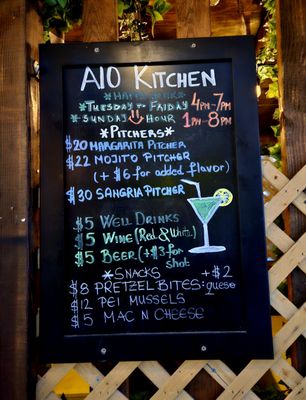 A1O KITCHEN
*HAPPY HOUR*
*TUESDAY - FRIDAY 4PM-7PM
*SUNDAY HOUR 1PM-8PM
*PITCHERS*
$20 MARGARITA PITCHER
$22 MOJITO PITCHER
(+ $6 for added flavor)
$30 SANGRIA PITCHER
$5 WELL DRINKS
$5 WINE (Red & White)
$5 BEER (+$3 for
shot
*SNACKS
+$2
$8 PRETZEL BITES: queso
$12 PEI MUSSELS
$5 MAC N CHEESE